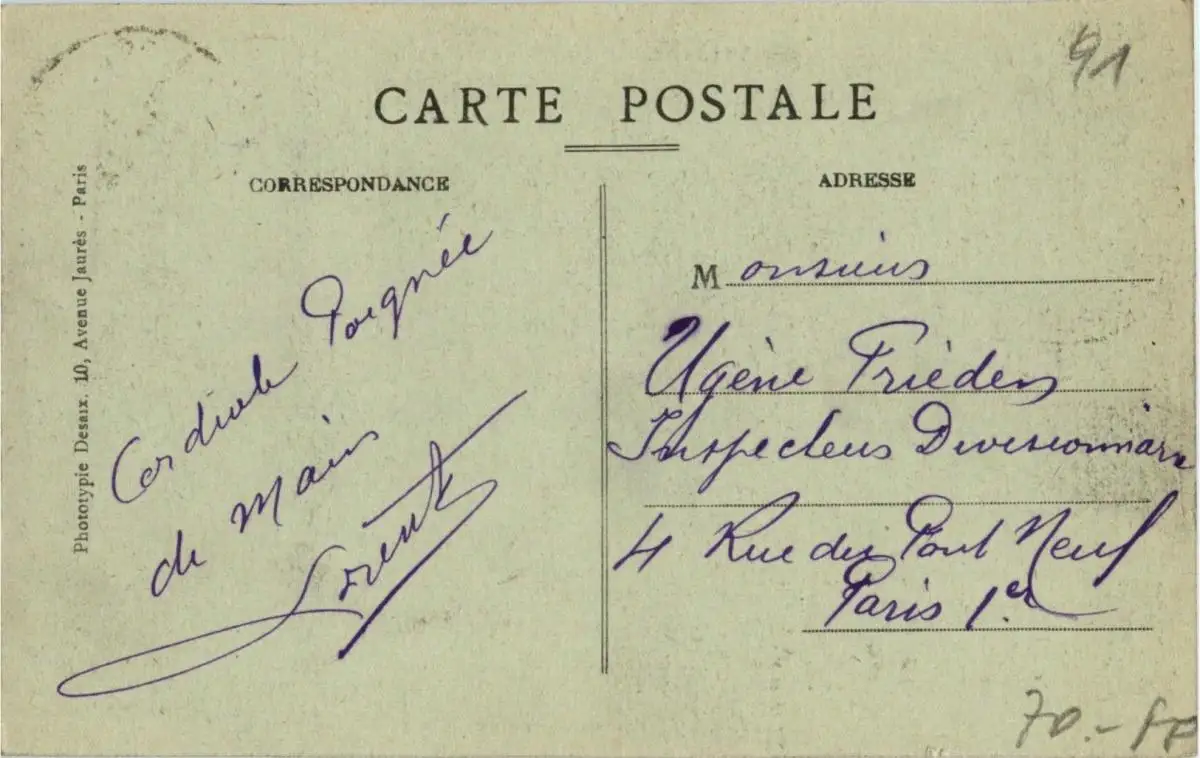 91
CARTE POSTALE
CORRESPONDANCE
ADRESSE
Phototypie Desaix. 10, Avenue Jaurès - Paris
Cordiale Poignée
de Main
Monsieur
Ugène Frieden
Inspecteur Divisionnaire
4 Rue du Pont Neuf
Paris 1er
70.-